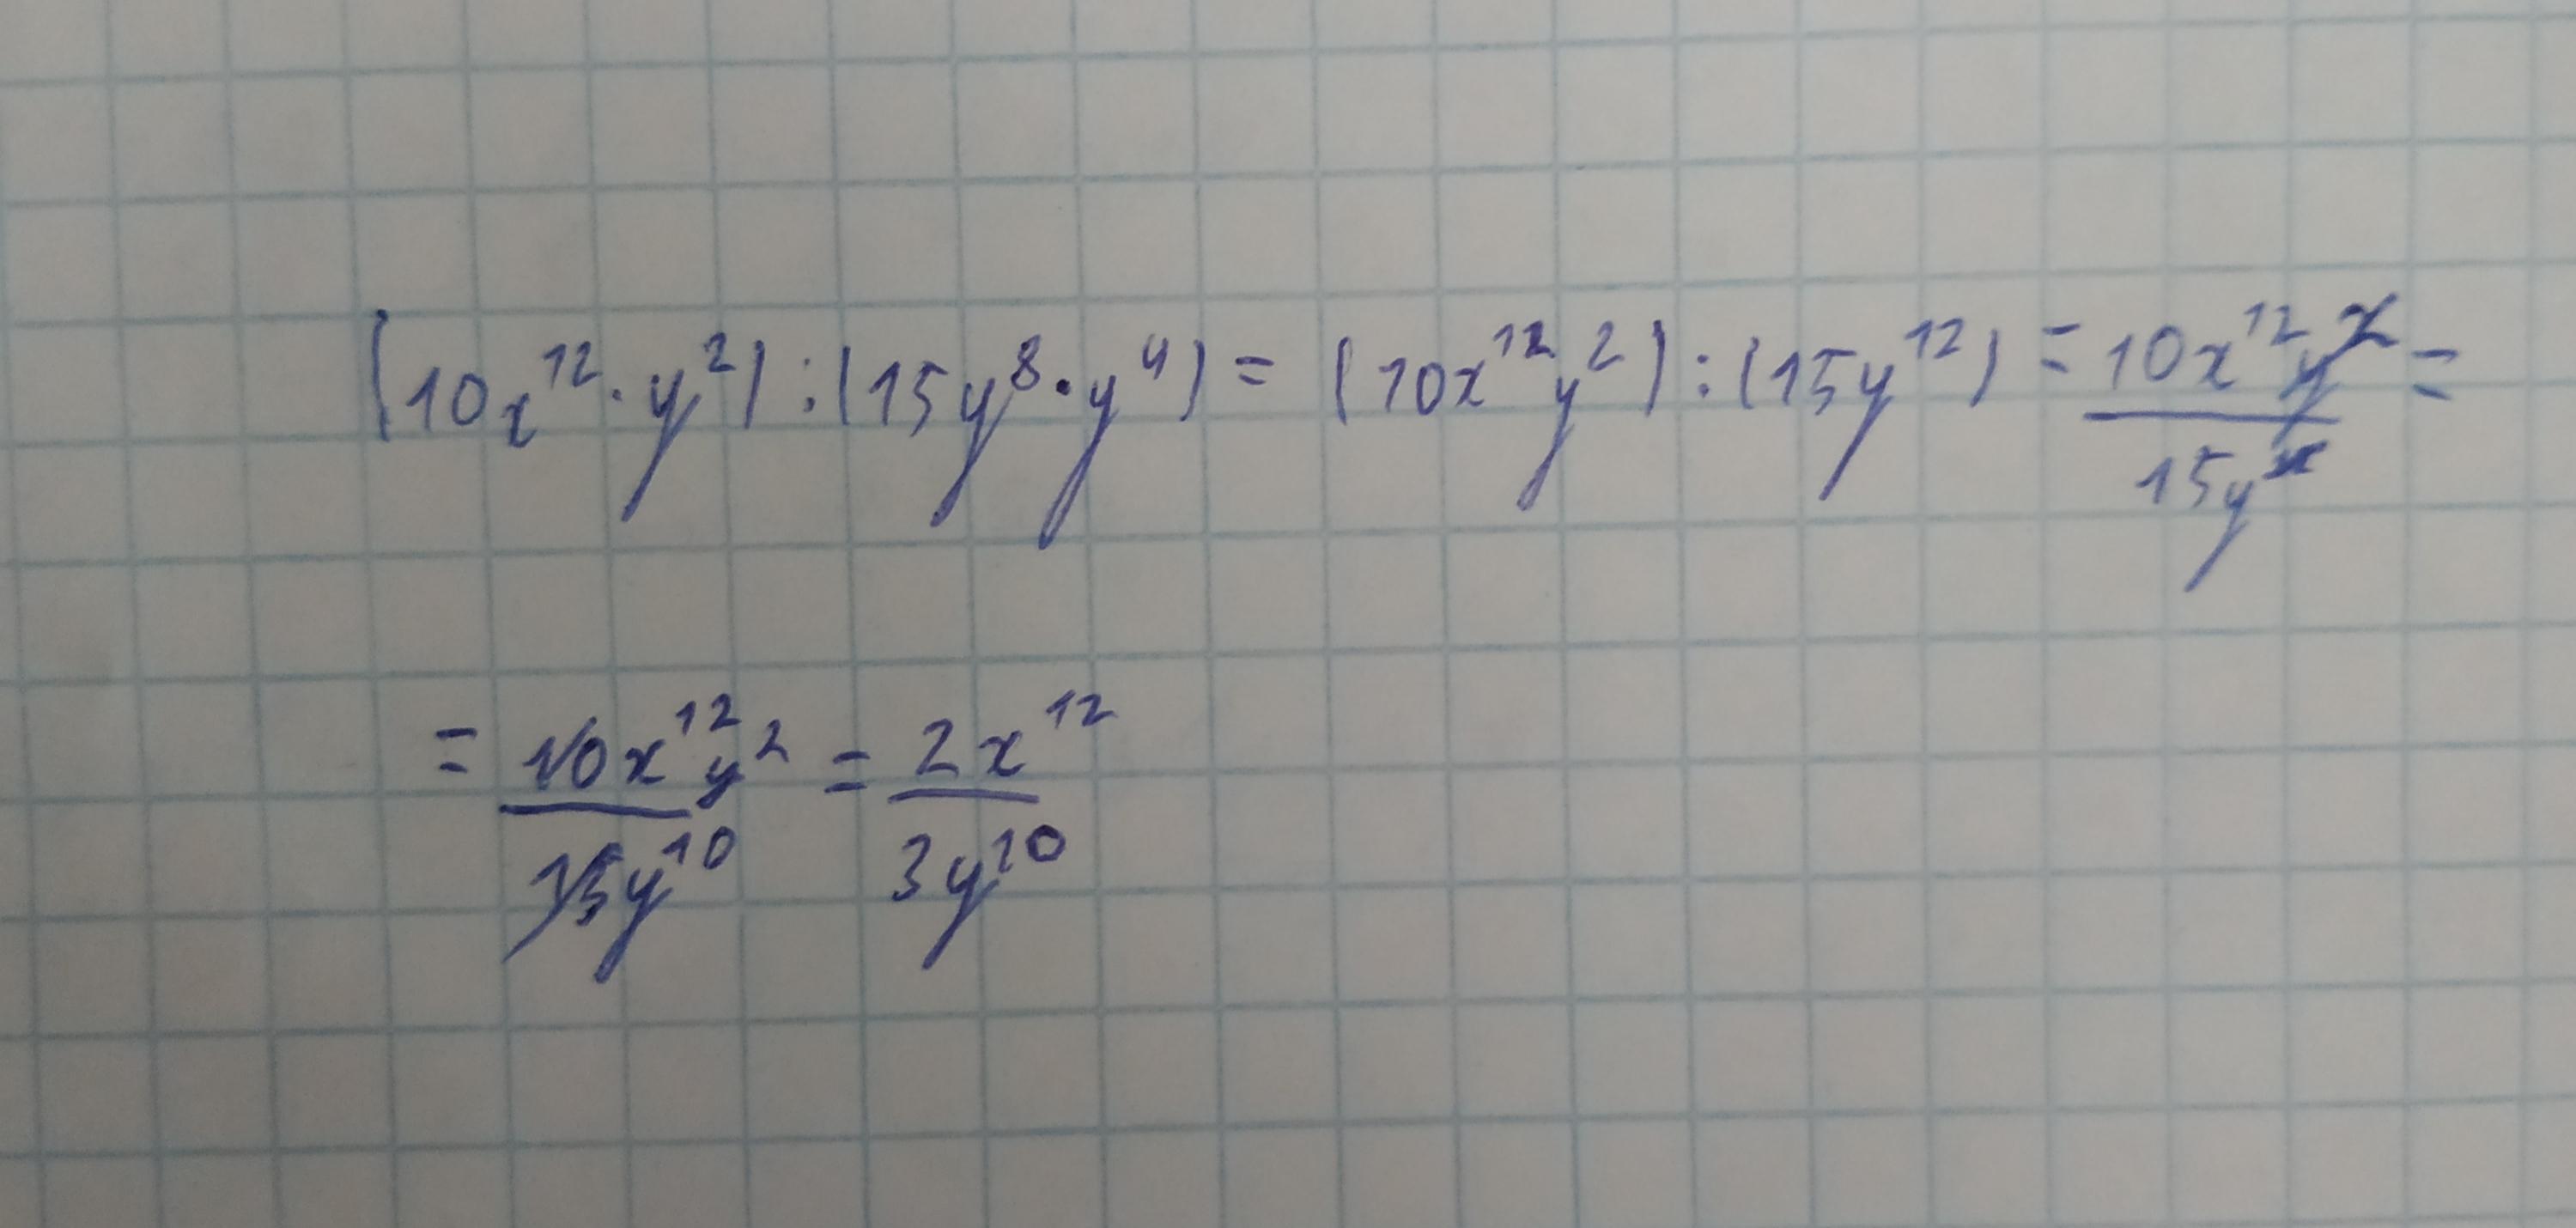 (10x¹²·y²):(15y⁸·y⁴)=(10x¹²y²):(15y¹²)=10x¹²y²/15y¹²=
=10x¹²y²/15y¹⁰=2x¹²/3y¹⁰